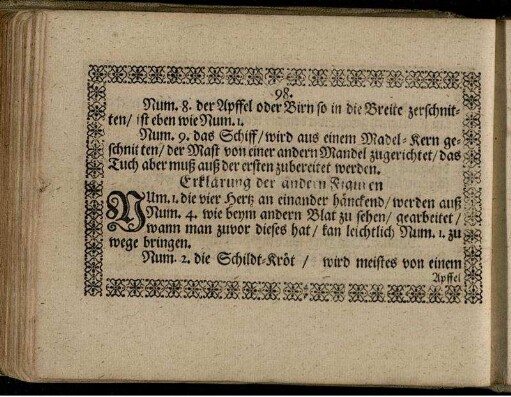 98.
Num. 8. der Apffel oder Birn so in die Breite zerschnit-
ten / ist eben wie Num. 1.
Num. 9. das Schiff / wird aus einem Madel-Kern ge-
schnitten / der Mast von einer andern Mandel zugerichtet / das
Tuch aber muß auß der ersten zubereitet werden.
Erklärung der andern Figuren
NUm. 1. die vier Hertz an einander hänckend / werden auß
Num. 4. wie beym andern Blat zu sehen / gearbeitet /
wann man zuvor dieses hat / kan leichtlich Num. 1. zu
wege bringen.
Num. 2. die Schildt-Kröt / wird meistes von einem
Apffel